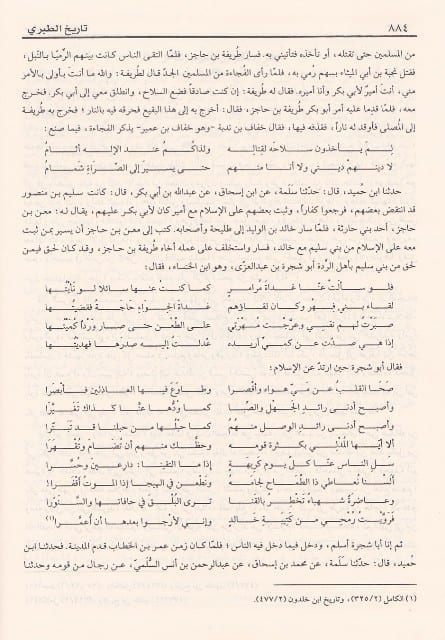 ٨٨٤ تاريخ الطبري
من المسلمين حتى تقتله، أو تأخذه فتأتيني به. فسار طُريفة بن حاجز، فلمّا التقى الناس كانت بينهم الرِّمِّيا بالنَّبل،
فقتل نَجبة بن أبي الميثاء بسهم رُمي به، فلمّا رأى الفُجاءة من المسلمين الجدَّ قال لطُريفة: والله ما أنتَ بأولى بالأمر
مني، أنت أميرٌ لأبي بكر وأنا أميره. فقال له طُريفة: إن كنت صادقاً فضع السلاح، وانطلق معي إلى أبي بكر. فخرج
معه، فلمّا قدما عليه أمر أبو بكر طُريفة بن حاجز، فقال: أخرج به إلى هذا البقيع فحرقه فيه بالنار؛ فخرج به طُريفة
إلى المُصلى فأوقد له ناراً، فقذفه فيها، فقال خفاف بن ندبة -وهو خفاف بن عمير- يذكر الفجاءة، فيما صنع:
لِمَ يـأخذون سلاحه لقتاله ولذاكمُ عند الإله أثامُ
لا دينهم ديني ولا أنا منهم حتى يسير إلى الصَّراةِ شَمامُ
حدثنا ابن حُميد، قال: حدّثنا سَلَمة، عن ابن إسحاق، عن عبدالله بن أبي بكر، قال: كانت سليم بن منصور
قد انتقض بعضهم، فرجعوا كفاراً، وثبت بعضهم على الإسلام مع أمير كان لأبي بكر عليهم، يقال له: معن بن
حاجز، أحد بني حارثة، فلمّا سار خالد بن الوليد إلى طليحة وأصحابه. كتب إلى معن بن حاجز أن يسير بمن ثبت
معه على الإسلام من بني سليم مع خالد، فسار واستخلف على عمله أخاه طُريفة بن حاجز، وقد كان لحق فيمن
لحق من بني سليم بأهل الرِّدة أبو شجرة بن عبدالعزّى، وهو ابن الخنساء، فقال:
فلـو سألتْ عنّا غداةَ مُرامرٍ كما كنتُ عنها سائلا لو نأيْتُها
لقاء بني فِهْر وكان لقاؤهم غداةَ الجِواء حاجةً فقضيْتُها
صَبَرْتُ لهم نفسي وعرَّجتُ مُهْرَتي على الطَّعن حتى صار وَرْداً كُمَيتُها
إذا هي صدّت عن كَميٍّ أريده عدلتُ إليه صدرَها فهديْتُها
فقال أبو شجرة حين ارتدَّ عن الإسلام:
صَحَا القلبُ عن مَيّ هواه وأقْصرا وطاوَعَ فيها العاذلين فأبْصَرا
وأصبح أدنى رائدِ الجهل والصِّبا كما وُدُّها عنّا كذاك تغيَّرا
وأصبح أدنى رائدِ الوصل منهُمُ كما حبْلُها من حبلنا قد تبَتّرا
ألا أيُّها المُدْلي بكثرة قومه وحظُّك منهم أن تُضَامَ وتُقْهَرا
سَلِ الناس عنّا كلَّ يومِ كَرِيهَةٍ إذا ما التقينا: دارعين وحُسَّرا
ألسْنا نُعاطي ذا الطِّماح لجامَهُ ونَطْعن في الهيجا إذا الموتُ أقْفَرا!
وعاضرةً شهباءَ تَخْطِرُ بالقَنا ترى البُلْقَ في حافاتها والسَّنَوَّرا
فَرَوَّيْتُ رُمْحي من كَتيبَةِ خالدٍ وإني لأرْجوا بعدها أن أُعمَّرا(١)
ثم إنا أبا شجرة أسلم، ودخل فيما دخل فيه الناس؛ فلمّا كان زمن عمر بن الخطاب قدم المدينة. فحدثنا ابن
حُميد، قال: حدّثنا سَلَمة، عن محمد بن إسحاق، عن عبدالرحمن بن أنس السُّلَميّ، عن رجال من قومه وحدثنا
(١) الكامل (٣٢٥/٢)، وتاريخ ابن خلدون (٤٧٧/٢).